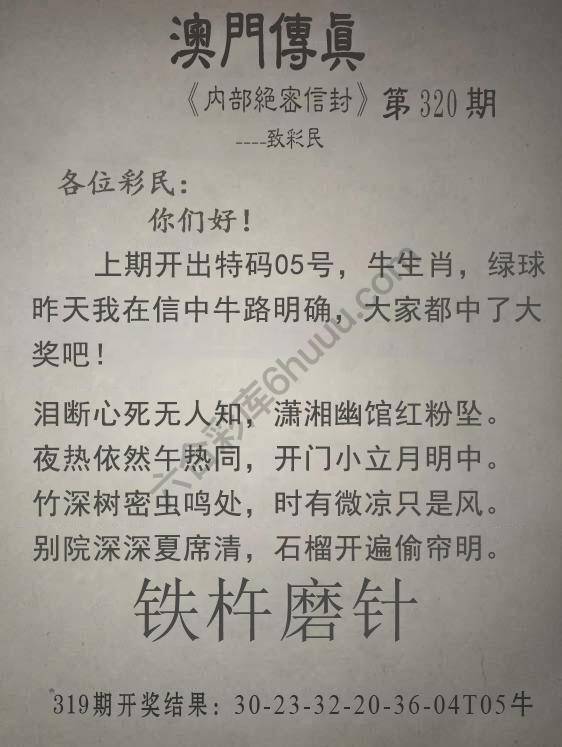 澳門傳眞
《内部絕密信封》第320期
----致彩民
各位彩民：
你们好！
上期开出特码05号，牛生肖，绿球
昨天我在信中牛路明确，大家都中了大
奖吧！
泪断心死无人知，潇湘幽馆红粉坠。
夜热依然午热同，开门小立月明中。
竹深树密虫鸣处，时有微凉只是风。
别院深深夏席清，石榴开遍偷帘明。
铁杵磨针
319期开奖结果：30-23-32-20-36-04T05牛
六合彩库6huuu.com